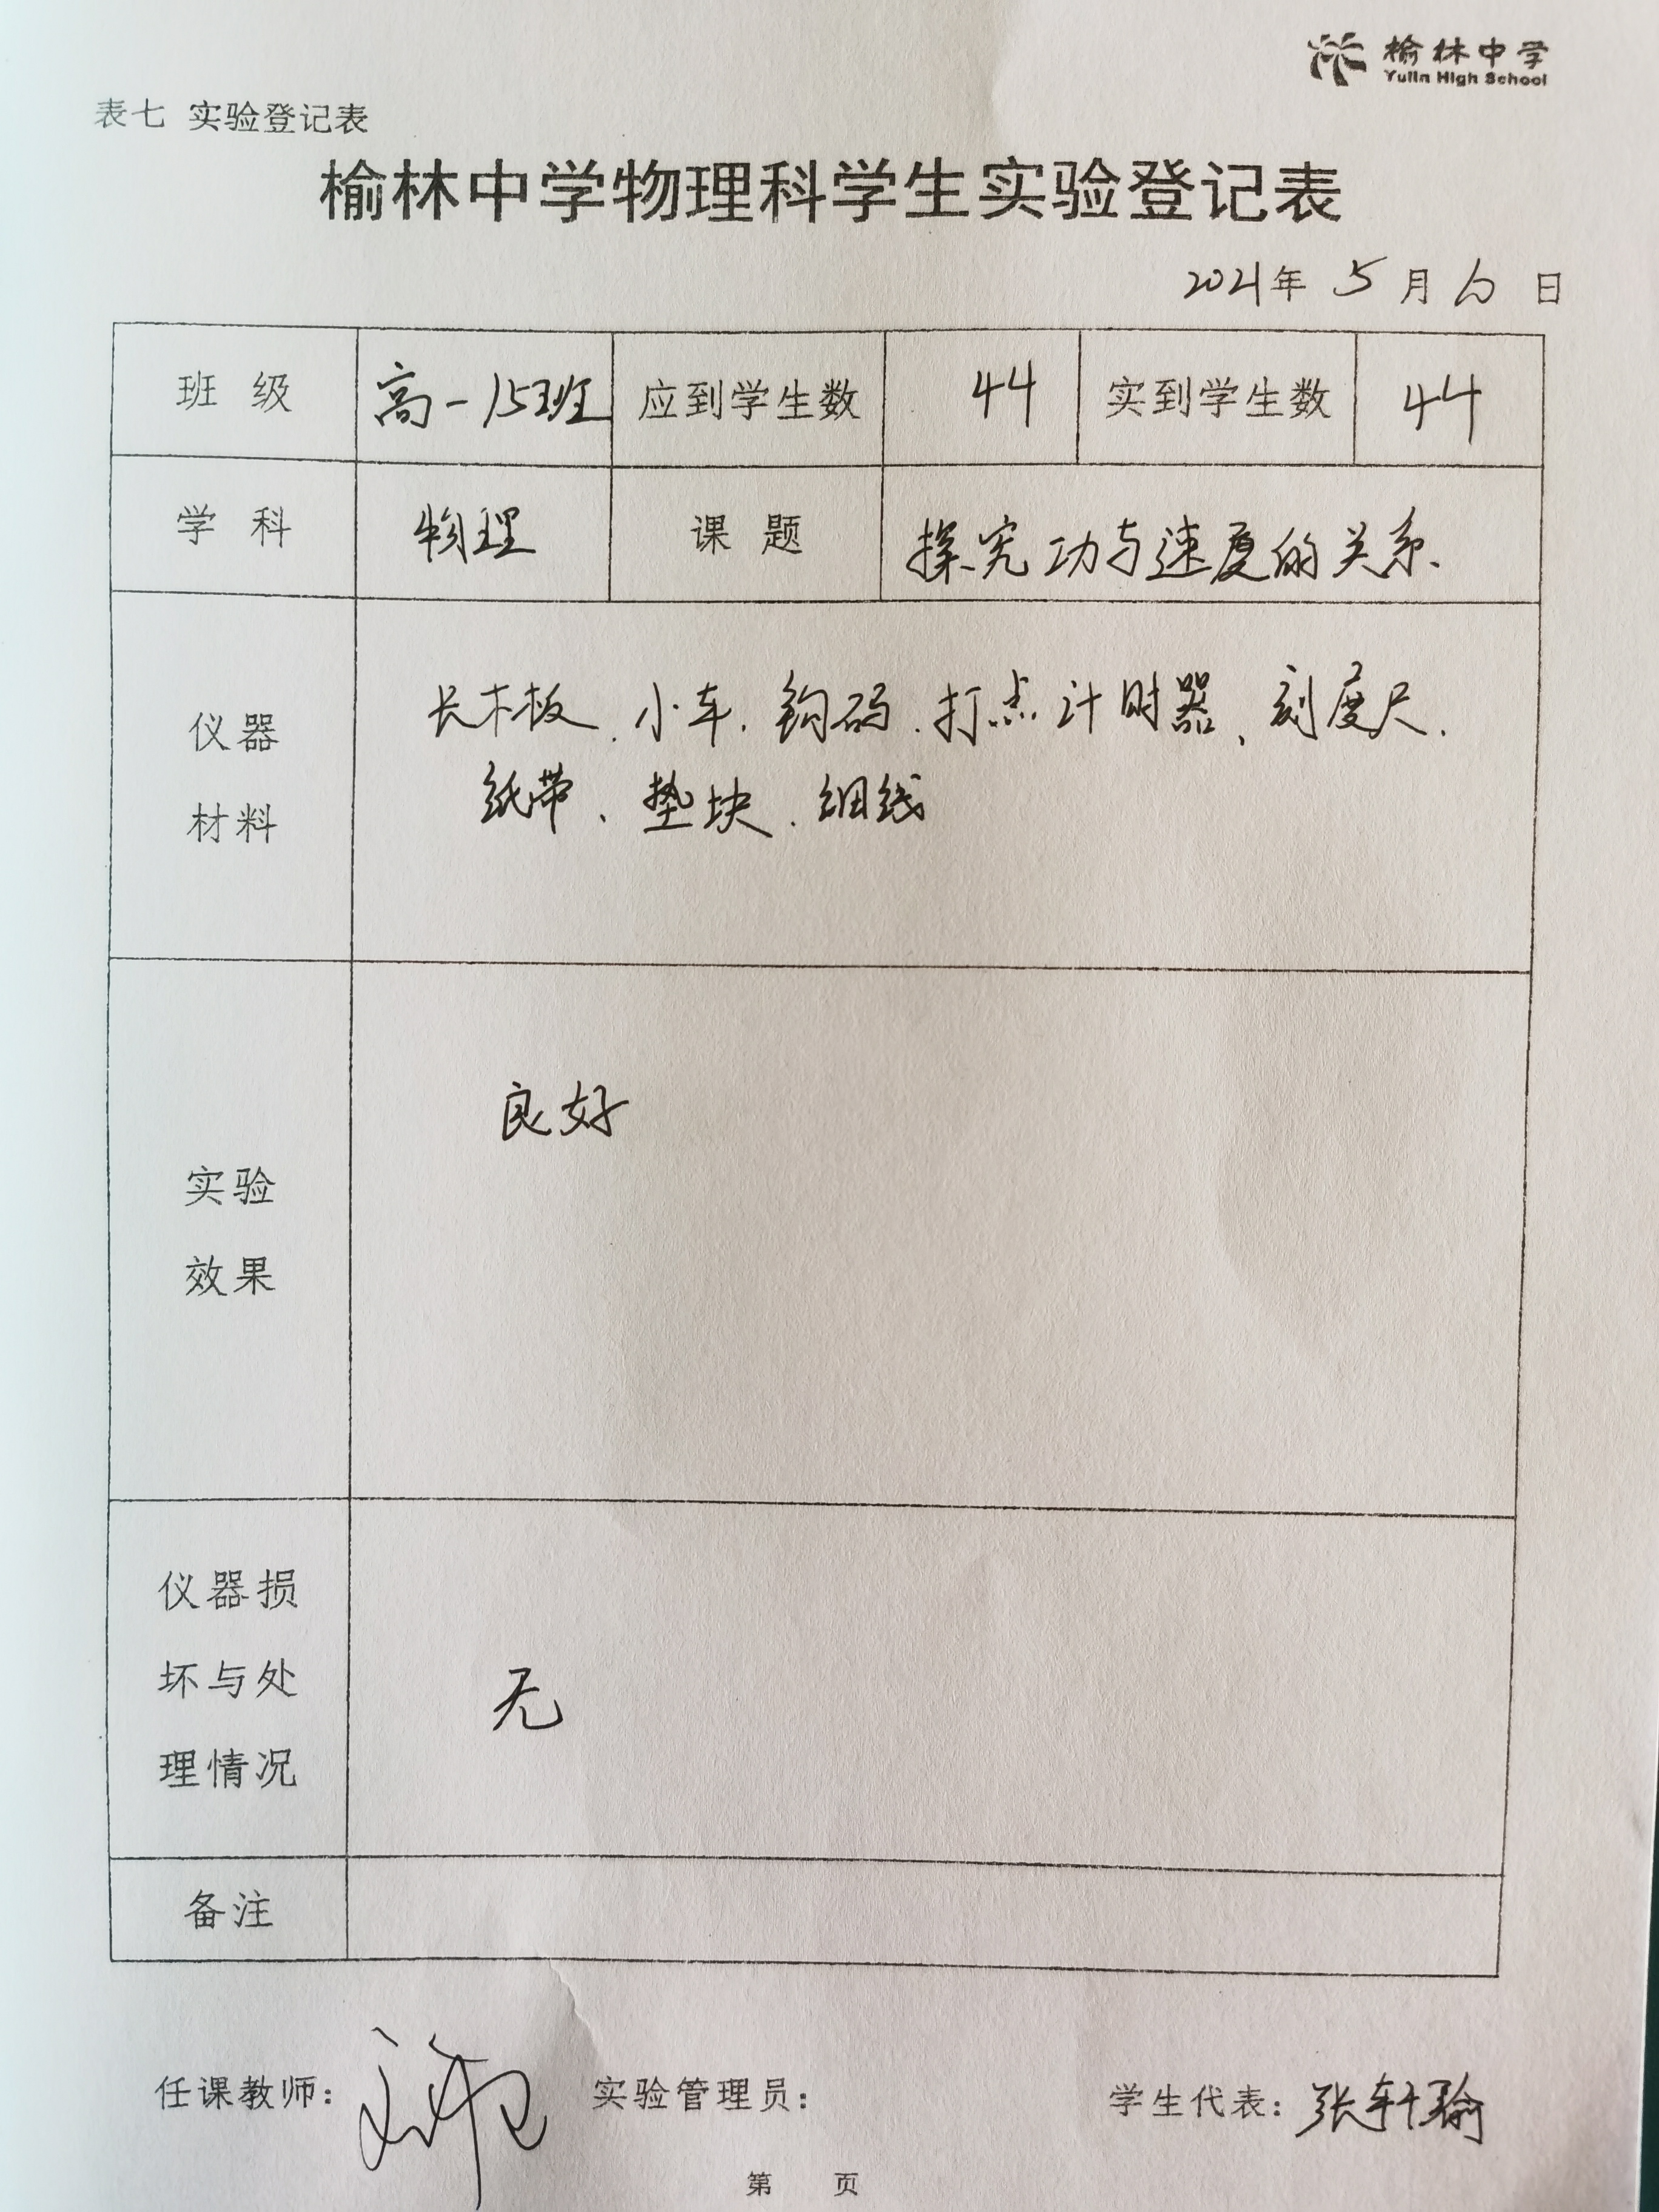 榆林中学
Yulin High School
表七 实验登记表
榆林中学物理科学生实验登记表
2021年 5 月 6 日
班 级 高一15班 应到学生数 44 实到学生数 44
学 科 物理 课 题 探究功与速度的关系、
仪器
材料
长木板、小车、钩码、打点计时器、刻度尺、
纸带、垫块、细线
实验
效果
良好
仪器损
坏与处
理情况
无
备注
任课教师： 实验管理员： 学生代表：张轩瑜
第 页